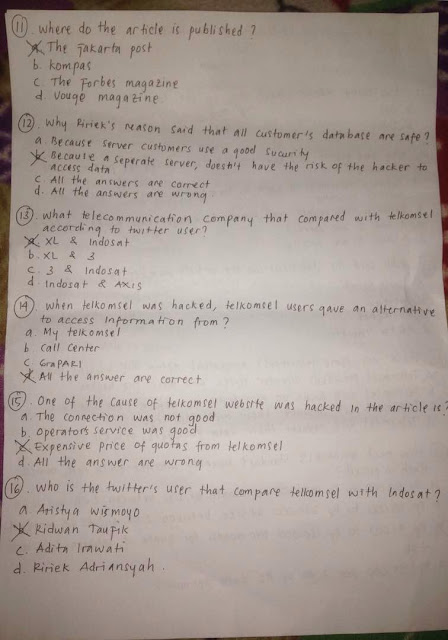 11. where do the article is published ?
a. The jakarta post
b. kompas
c. The Forbes magazine
d. Vouge magazine.
12. Why Ririek's reason said that all customer's database are safe ?
a. Because server customers use a good sucurity
b. Because a seperate server, doesn't have the risk of the hacker to
access data
c. All the answers are correct
d. All the answers are wrong
13. what telecommunication company that compared with telkomsel
according to twitter user?
a. XL & Indosat
b. XL & 3
c. 3 & Indosat
d. Indosat & AXIS
14. when telkomsel was hacked, telkomsel users gave an alternative
to access information from ?
a. My telkomsel
b. Call Center
c. GraPARI
d. All the answer are correct
15. One of the cause of telkomsel website was hacked in the article is?
a. The connection was not good
b. Operators service was good
c. Expensive price of quotas from telkomsel
d. All the answer are wrong
16. who is the twitter's user that compare telkomsel with Indosat ?
a. Aristya wismoyo
b. Ridwan Taufik
c. Adita Irawati
d. Ririek Adriansyah.